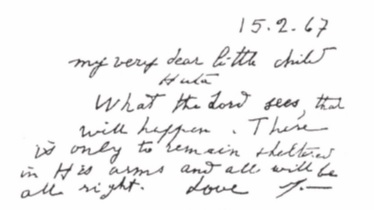 15.2.67
my very dear little child
Huta
What the Lord sees, that
will happen. There
is only to remain sheltered
in His arms and all will be
all right. Love